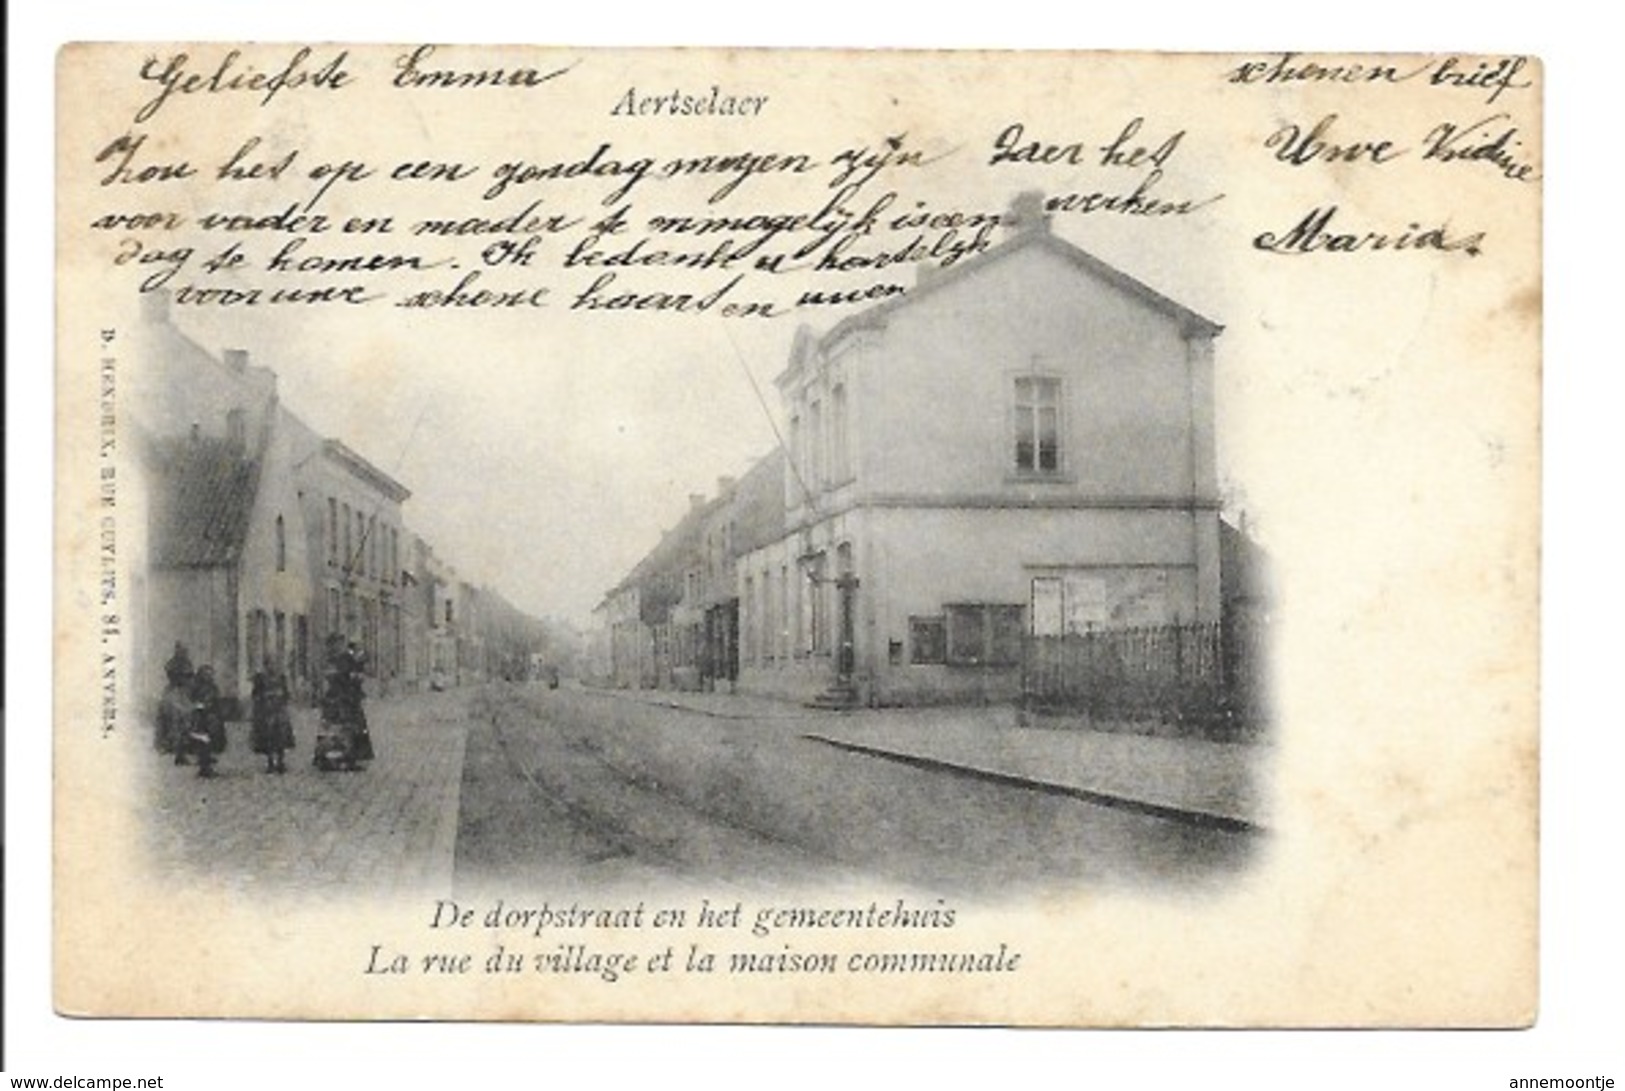 Geliefste Emma
Aertselaer
Zou het op een zondag mogen zijn Daer het
voor vader en moeder te onmogelijk is een werken
dag te komen. Ik bedank u hartelijk
voor uwe schone kaart en uwen
schonen brief
Uwe Vridine
Maria.
D. HENDRIX, RUE CUYLITS, 81, ANVERS.
De dorpstraat en het gemeentehuis
La rue du village et la maison communale
www.delcampe.net
annemoontje